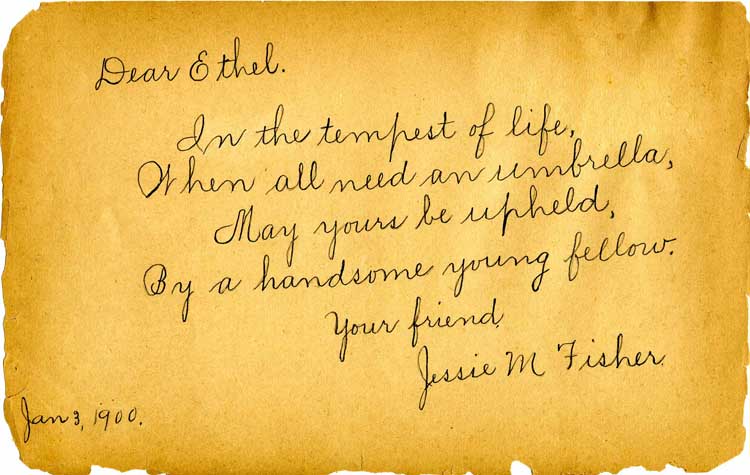 Dear Ethel.
In the tempest of life,
When all need an umbrella,
May yours be upheld,
By a handsome young fellow.
Your friend
Jessie M Fisher
Jan 3, 1900.